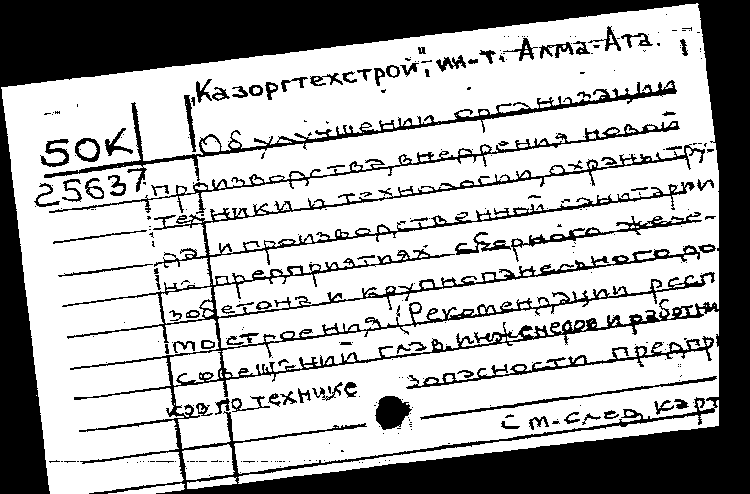 „Казоргтехстрой", ин-т. Алма-Ата. 1
50К
Об улучшении организации
25637 производства, внедрения новой
техники и технологии, охраны тру-
да и производственной санитарии
на предприятиях сборного желе-
зобетона и крупнопанельного до
мостроения. (Рекомендации респ
совещаний глав. инженеров и работни
ков по технике зопасности предпри
См. след. карт